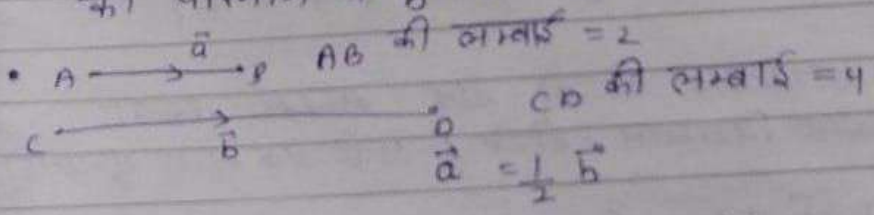 • A a⃗ B AB की लम्बाई = 2
C b⃗ D CD की लम्बाई = 4
a⃗ = 1/2 b⃗